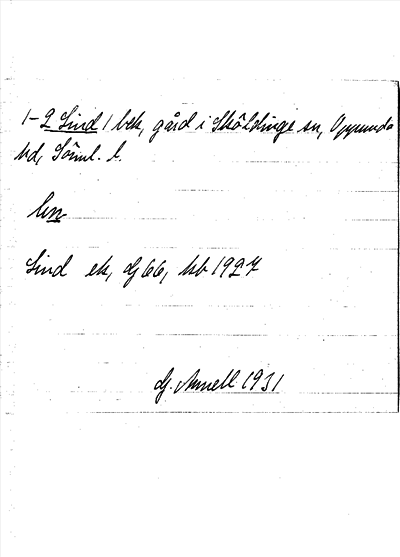 1-2 Lind / bek, gård i Sköldinge sn, Oppunda
hd, Söml. l.
Lind ek, dj 66, kb 1927
dj. Arnell 1931